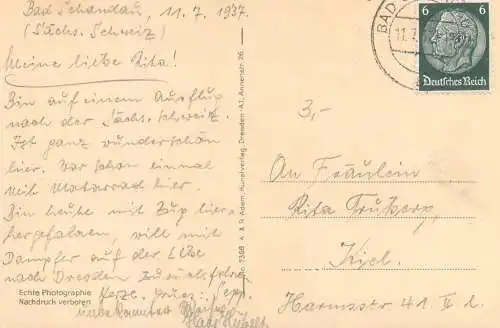 Bad Schandau, 11.7.1937.
(Sächs. Schweiz)
Meine liebe Rita!
Bin auf einem Ausflug
nach der Sächs. Schweiz.
Ist ganz wunderschön
hier. War schon einmal
mit Motorrad hier.
Bin heute mit Zug hier-
hergefahren, will mit
Dampfer auf der Elbe
nach Dresden zurückfahren
Herzl. Grüße Sepp
unbekannter Weise
Echte Photographie
Nachdruck verboten
7368 A. & R. Adam, Kunstverlag, Dresden-A1, Annenstr. 26.
BAD
11.7.
6
Deutsches Reich
3,-
An Fräulein
Rita
Kiel.
Harmsstr. 41 II l.